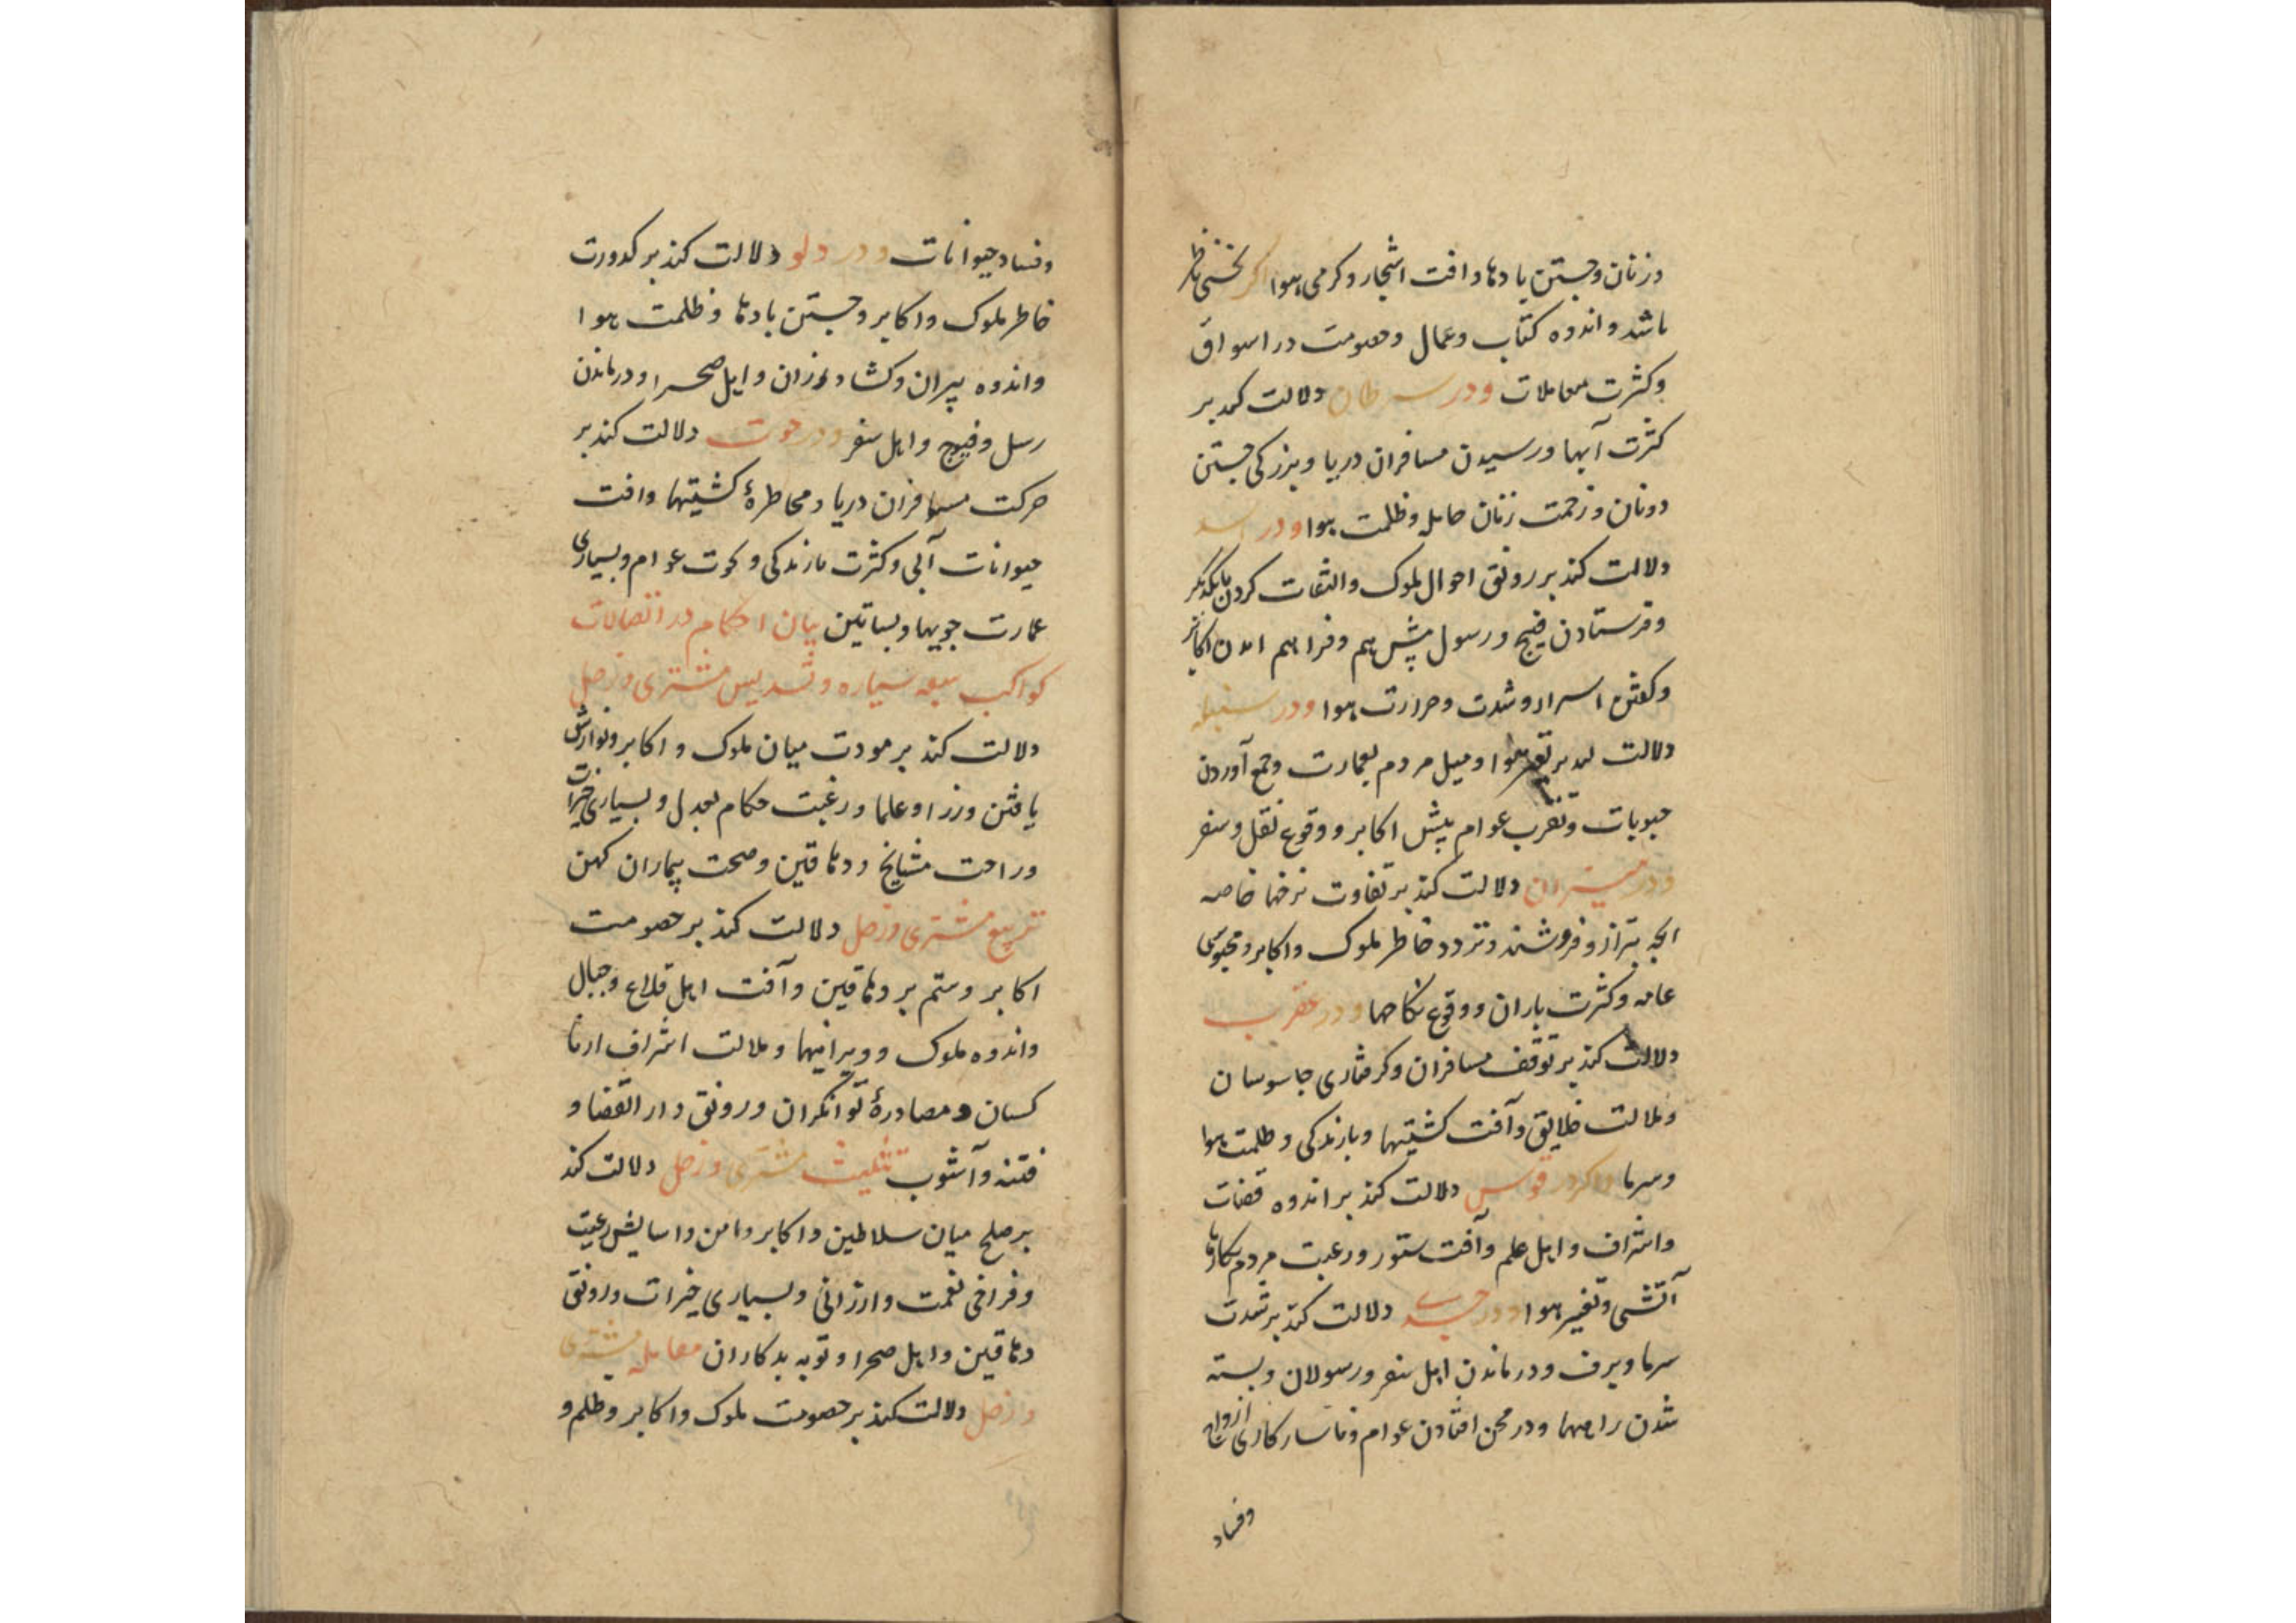 وزنان وجستن بادها وافت اشجار وکرمی هوا اکر نحسی ناظر
باشد واندوه کتاب وعمال وخصومت در اسواق
وکثرت معاملات ودر سرطان دلالت کند بر
کثرت آبها ورسیدن مسافران دریا وبزرکی جستن
دونان وزحمت زنان حامله وظلمت هوا ودر اسد
دلالت کند بر رونق احوال ملوک والتفات کردن بایکدیکر
وفرستادن فیج ورسول پیش هم وفراهم امدن اکابر
وکفتن اسرار وشدت وحرارت هوا ودر سنبله
دلالت کند بر تغیر هوا ومیل مردم بعمارت وجمع آوردن
حبوبات وتقرب عوام پیش اکابر ووقوع نقل وسفر
ودر میزان دلالت کند بر تفاوت نرخها خاصه
انچه بترازو فروشند وتردد خاطر ملوک واکابر ومحبوسی
عامه وکثرت باران ووقوع نکاحها ودر عقرب
دلالت کند بر توقف مسافران وکرفتاری جاسوسان
وملالت خلایق وآفت کشتیها وبارندکی وظلمت هوا
وسرما واکر در قوس دلالت کند بر اندوه قضات
واشراف واهل علم وآفت ستور ورغبت مردم بکارهای
آتشی وتغیر هوا ودر جدی دلالت کند بر شدت
سرما وبرف ودرماندن اهل سفر ورسولان وبسته
شدن راهها ودر محن افتادن عوام وناسازکاری ازواج
وفساد
وفساد حیوانات ودر دلو دلالت کند بر کدورت
خاطر ملوک واکابر وجستن بادها وظلمت هوا
واندوه پیران وکشاورزان واهل صحرا ودرماندن
رسل وفیوج واهل سفر ودر حوت دلالت کند بر
حرکت مسافران دریا ومخاطرهٔ کشتیها وافت
حیوانات آبی وکثرت بارندکی و عوام وبسیاری
عمارت جویها وبساتین بیان احکام در اتصالات
کواکب سبعه سیاره وتسدیس مشتری وزحل
دلالت کند بر مودت میان ملوک واکابر ونوازش
یافتن وزرا وعلما ورغبت حکام بعدل وبسیاری خیرات
وراحت مشایخ ودهاقین وصحت بیماران کهن
تربیع مشتری وزحل دلالت کند بر خصومت
اکابر وستم بر دهاقین وآفت اهل قلاع وجبال
واندوه ملوک وویرانیها وملالت اشراف ازنا
کسان ومصادرهٔ توانکران ورونق دار القضا و
فتنه وآشوب تثلیث مشتری وزحل دلالت کند
بر صلح میان سلاطین واکابر وامن واسایش رعیت
وفراخی نعمت وارزانی وبسیاری خیرات ورونق
دهاقین واهل صحرا وتوبه بدکاران مقابله مشتری
وزحل دلالت کند بر خصومت ملوک واکابر وظلم و